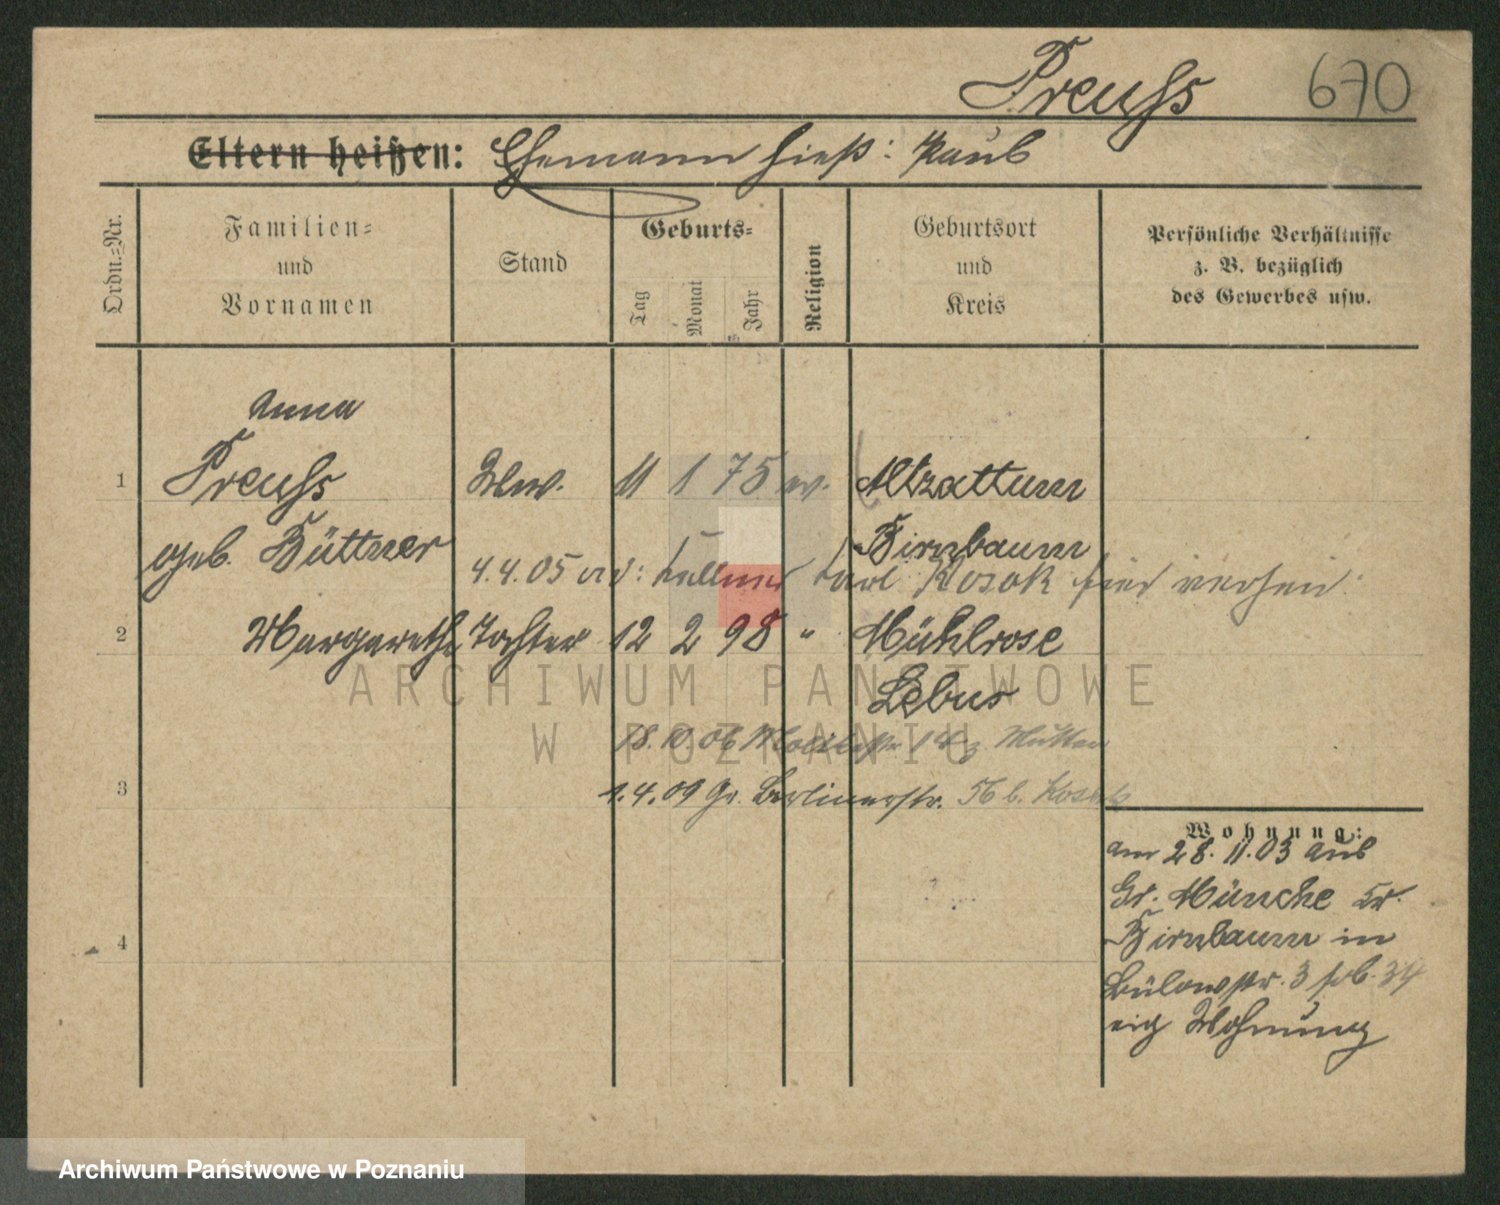 Preuss 670
Eltern heißen: Ehemann hieß: Paul
Ordn.-Nr.
Familien-
und
Vornamen
Stand
Geburts-
Tag
Monat
Jahr
Religion
Geburtsort
und
Kreis
Persönliche Verhältnisse
z. B. bezüglich
des Gewerbes usw.
Anna
1 Preuss Ww. 11 1 75 ev. Altzattum
geb. Büttner Birnbaum
4.4.05 Karl Kosok hier
2 Margarethe Tochter 12 2 98 " Mühlrose
Lebus
18.10.06
3
1.4.09 Gr. Berlinerstr. 56 b. Kosok
4
Wohnung:
am 28.11.03 aus
Gr. Münche Kr.
Birnbaum in
Bülowstr. 3
eig Wohnung
ARCHIWUM PAŃSTWOWE
W POZNANIU
Archiwum Państwowe w Poznaniu